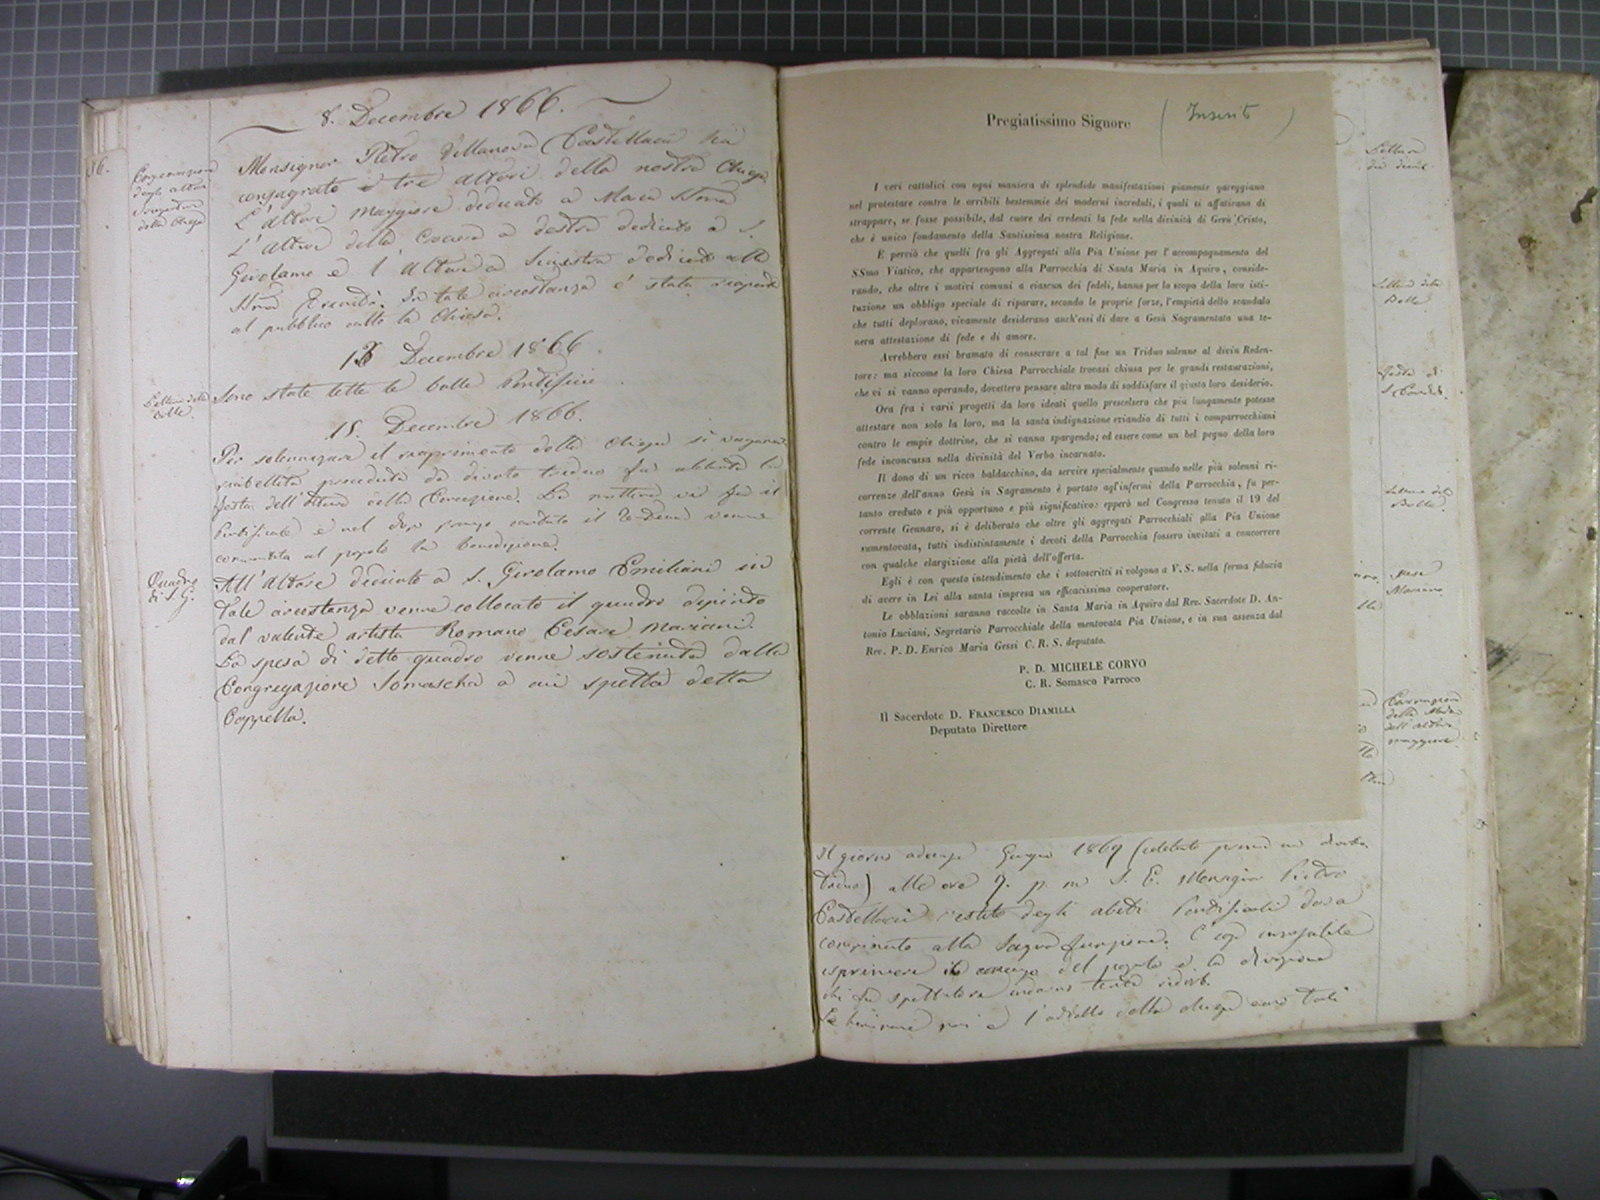 8. Decembre 1866.
86.
Consecrazione
degli altari
della Chiesa
Monsignor Pietro Villanova Castellacci ha
consagrato i tre altari della nostra Chiesa
L'altare maggiore dedicato a Maria SSma
L'altare della Crociera a destra dedicato a S.
Girolamo e l'altare a Sinistra dedicato alla
SSma Trinità. In tale circostanza è stata riaperta
al pubblico culto la Chiesa.
13 Decembre 1866.
Lettura delle
Bolle.
Sono state lette le bolle Pontificie.
15. Decembre 1866.
Per solennizzare il riaprimento della chiesa si
preceduta da divoto triduo fu celebrata la
festa dell' della Concezione. La mattina vi fu il
Pontificale e nel dopo pranzo cantato il Te Deum venne
compartita al popolo la benedizione.
Quadro
di S. G.
All'altare dedicato a S. Girolamo Emiliani in
tale circostanza venne collocato il quadro dipinto
dal valente artista Romano Cesare Mariani.
La spesa di detto quadro venne sostenuta dalla
Congregazione Somascha a cui spetta detta
Cappella.
Pregiatissimo Signore
( Inserito )
I veri cattolici con ogni maniera di splendide manifestazioni piamente gareggiano
nel protestare contro le orribili bestemmie dei moderni increduli, i quali si affatirano di
strappare, se fosse possibile, dal cuore dei credenti la fede nella divinità di Gerù Cristo,
che è unico fondamento della Santissima nostra Religione.
E perciò che quelli fra gli Aggregati alla Pia Unione per l'accompagnamento del
SSmo Viatico, che appartengono alla Parrocchia di Santa Maria in Aquiro, conside-
rando, che oltre i motivi comuni a ciascun dei fedeli, hanno per lo scopo della loro isti-
tuzione un obbligo speciale di riparare, secondo le proprie forze, l'empietà dello scandalo
che tutti deplorano, vivamente desiderano anch'essi di dare a Gesù Sagramentato una te-
nera attestazione di fede e di amore.
Avrebbero essi bramato di consecrare a tal fine un Triduo solenne al divin Reden-
tore: ma siccome la loro Chiesa Parrocchiale trovasi chiusa per le grandi restaurazioni,
che vi si vanno operando, dovettero pensare altro modo di soddisfare il giusto loro desiderio.
Ora fra i varii progetti da loro ideati quello prescelsero che più lungamente potesse
attestare non solo la loro, ma la santi indignazione eziandio di tutti i comparrocchiani
contro le empie dottrine, che si vanno spargendo; ed essere come un bel pegno della loro
fede inconcussa nella divinità del Verbo incarnato.
Il dono di un ricco baldacchino, da servire specialmente quando nelle più solenni ri-
correnze dell'anno Gesù in Sagramento è portato agl'infermi della Parrocchia, fu per-
tanto creduto e più opportuno e più significativo: epperò nel Congresso tenuto il 19 del
corrente Gennaro, si è deliberato che oltre gli aggregati Parrocchiali alla Pia Unione
sumentovata, tutti indistintamente i devoti della Parrocchia fossero invitati a concorrere
con qualche elargizione alla pietà dell'offerta.
Egli è con questo intendimento che i sottoscritti si volgono a V. S. nella ferma fiducia
di avere in Lei alla santa impresa un efficacissimo cooperatore.
Le obblazioni saranno raccolte in Santa Maria in Aquiro dal Rev. Sacerdote D. An-
tonio Luciani, Segretario Parrocchiale della mentovata Pia Unione, e in sua assenza dal
Rev. P. D. Enrico Maria Gessi C. R. S. deputato.
P. D. MICHELE CORVO
C. R. Somasco Parroco
Il Sacerdote D. FRANCESCO DIAMILLA
Deputato Direttore
Il giorno Giugno 1869 (celebrato prima un divoto
triduo) alle ore 7. p. m S. E. Monsignor Pietro
Castellacci vestito degli abiti Pontificali dava
compimento alla Sagra funzione. È cosa
esprimere il concorso del popolo e la divozione
della chiesa erano tali
Lettura
Lettura delle
Bolle.
Festa di
Lettura delle
Bolle.
Mese
Mariano
Consecrazione
della
dell'altare
maggiore.